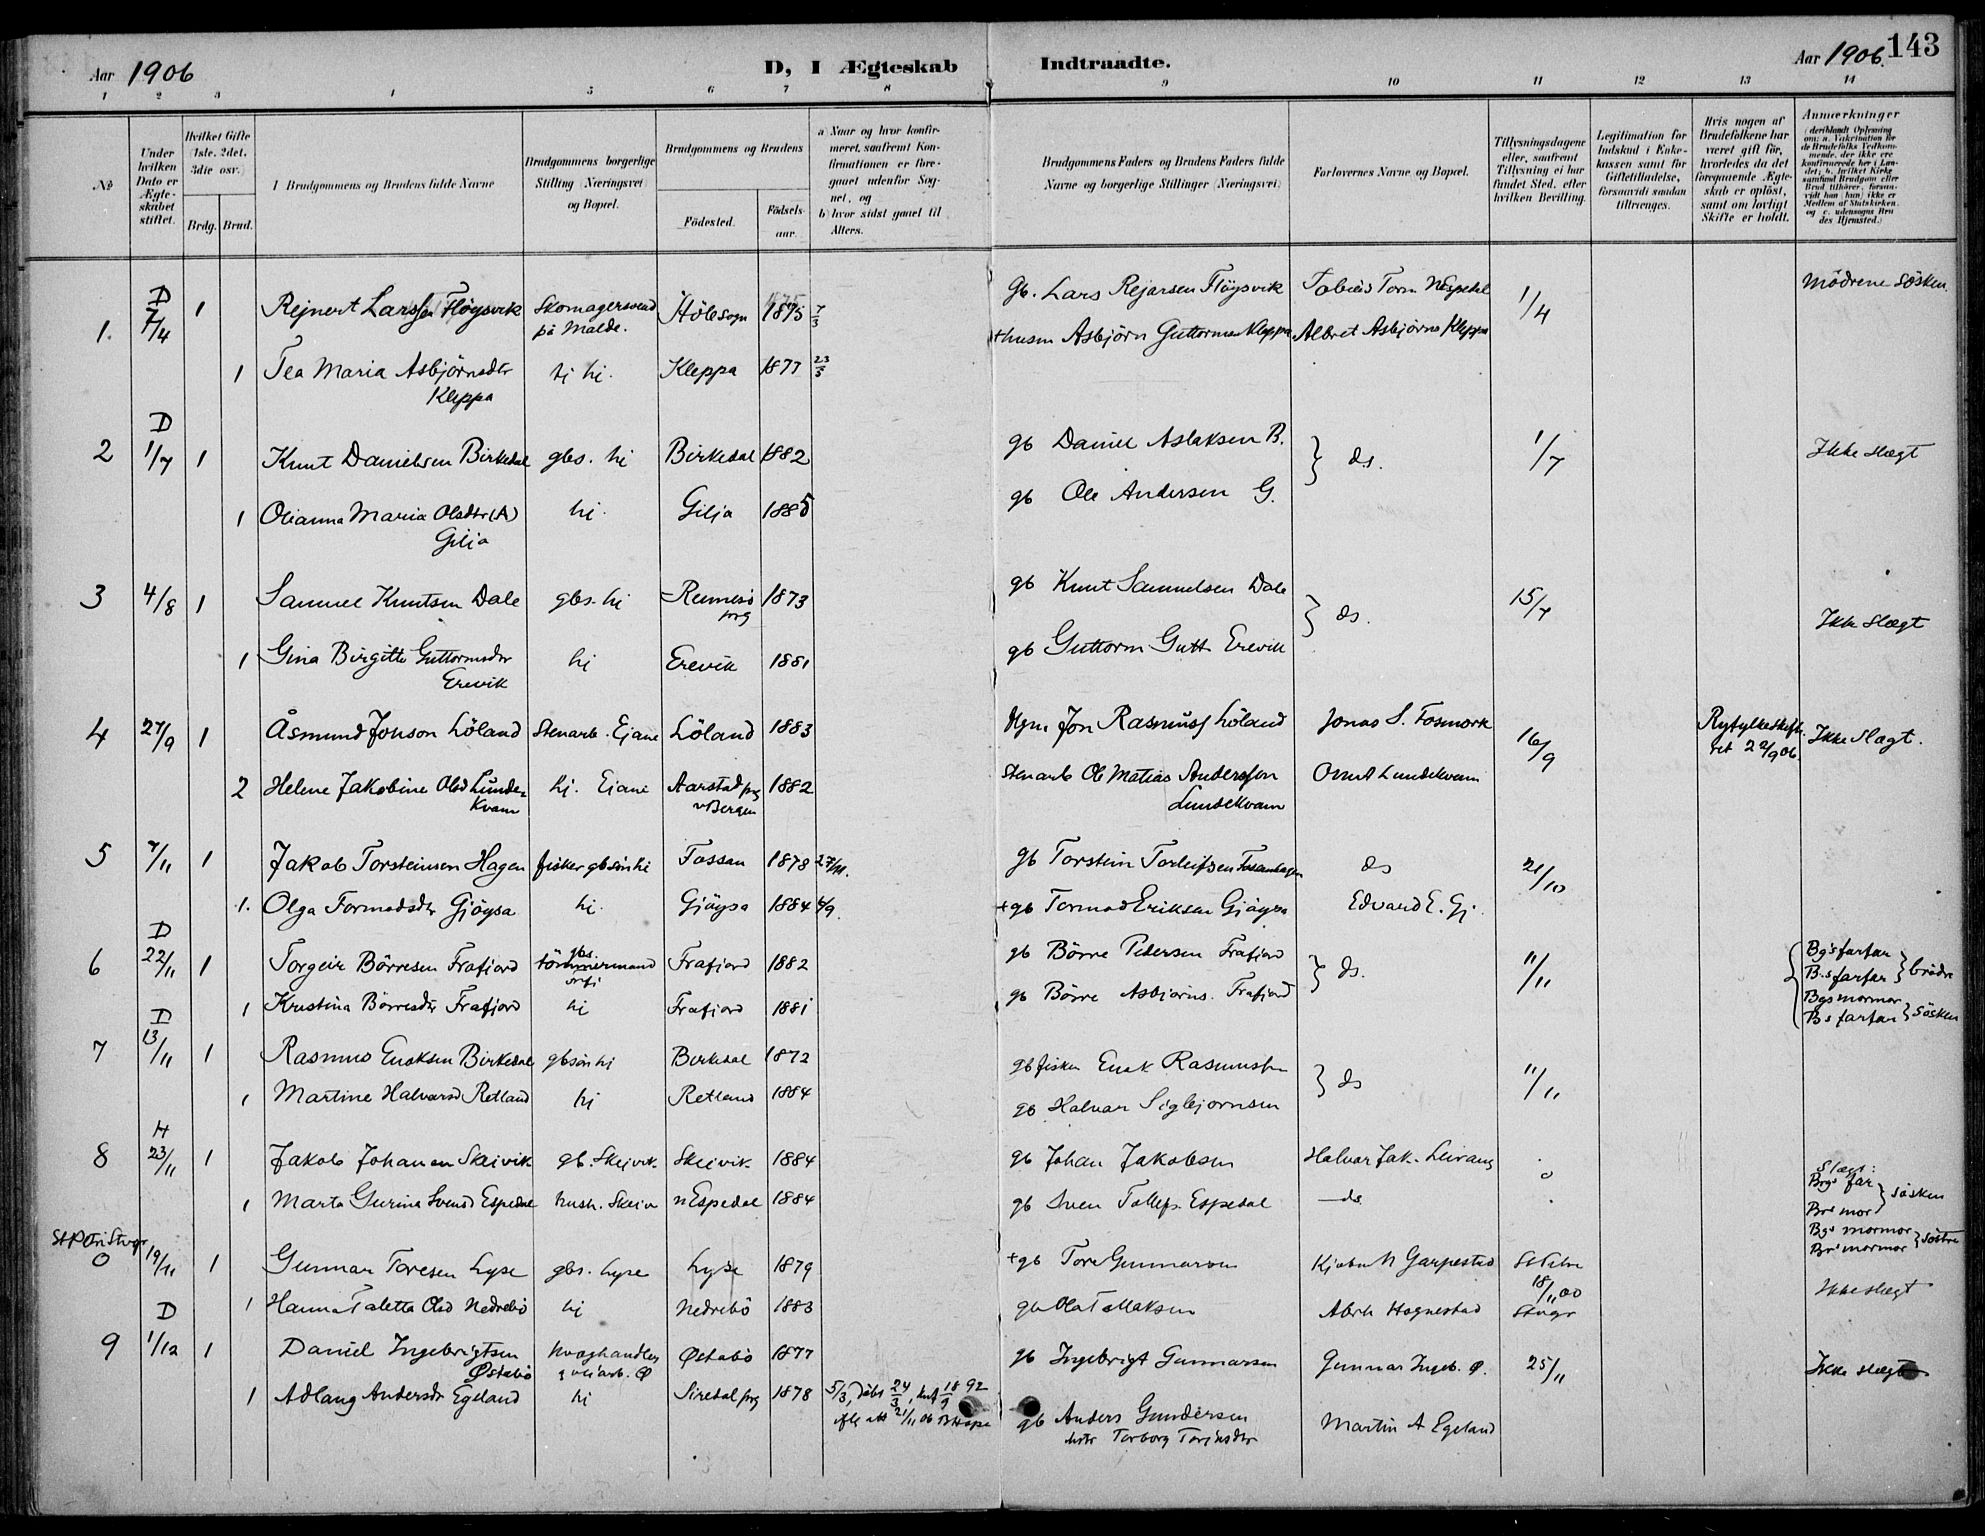 Aar 1906
D, I Ægteskab Indtraadte.
Aar 1906. 143
1 2 3 4 5 6 7 8 9 10 11 12 13 14
No
Under hvilken Dato er Ægteskabet stiftet.
Hvilket Gifte (1ste, 2det, 3die osv.)
Brdg. Brud.
Brudgommens og Brudens fulde Navne
Brudgommens borgerlige Stilling (Næringsvei) og Bopæl.
Brudgommens og Brudens
Födested. Födselsaar.
a) Naar og hvor konfirmeret, saafremt Konfirmationen er foregaaet udenfor Sognet, og
b) hvor sidst gaaet til Alters.
Brudgommens Faders og Brudens Faders fulde Navne og borgerlige Stillinger (Næringsvei)
Forlovernes Navne og Bopæl.
Tillysningsdagene eller, saafremt Tillysning ei har fundet Sted, efter hvilken Bevilling.
Legitimation for Indskud i Enkekassen samt for Giftetilladelse, forsaavidt saadan tiltrænges.
Hvis nogen af Brudefolkene har været gift før, hvorledes da det foregaaende Ægteskab er oplöst, samt om lovligt Skifte er holdt.
Anmærkninger
1. D 7/4 1 Rejnert Larssen Fløysvik Skomagersvend på Malde. Höle sogn 1875 7/3 gb. Lars Rejarsen Fløysvik Tobias Torn. Nespedal 1/4 Mödrene Søsken
1 Tea Maria Asbjörnsdtr Kleppa hj hi. Kleppa 1877 23/3 + husm Asbjörn Guttormsen Kleppa Albret Asbjørns Kleppa
2 D 1/7 1 Knut Danielsen Birkedal gbs. hi Birkedal 1882 gb Daniel Aslaksen B. ds. 1/7 Ikke slægt
1 Olianna Maria Olsdtr (A) Gilja hj. Gilja 1885 gb Ole Andersen G.
3 4/8 1 Samuel Knutsen Dale gbs. hi Rennesö prg 1873 gb Knut Samuelsen Dale ds. 15/7 Ikke slægt
1 Gina Birgitte Guttormsdtr Erevik hj Erevik 1881 gb Guttorm Gutt. Erevik
4 27/9 1 Åsmund Jonson Löland Stenarb. Ejane Löland 1883 Jon Rasmuss Löland Jonas S. Fosmork 16/9 Ryfylke skifter. 22/9 06. Ikke Slægt.
2 Helene Jakobine Olsd Lundekvam hj. Ejane Aarstad prg v Bergen 1882 Stenarb Ol Matias Anderssen Lundekvam Lundekvam
5 7/11 1 Jakob Torsteinsen Hagen fisker gbsön hi Fossan 1878 gb Torstein Torleifsen Fosanhagen ds 21/10
1. Olga Tormodsdtr Gjöysa hj. Gjöysa 1884 4/9. + gb Tormod Eriksen Gjöysa Edvard E. Gj.
6 D 22/11 1 Torgeir Börresen Frafjord gbs. tömmermand Frafjord 1882 gb Börre Pedersen Frafjord ds. 11/11 Bgs farfar B.s farfar } brödre
1 Kristina Börresdtr Frafjord hj Frafjord 1881 gb Börre Asbjörns. Frafjord Bgs mormor Bs farfar } Søsken
7 D 13/11 1 Rasmus Enoksen Birkedal gbsön hi Birkedal 1872 gb fisker Enok Rasmussen ds 11/11
1 Martine Halvarsd Retland hj Retland 1884 gb Halvar Sigbjørnsen
8 H 23/11 1 Jakob Johansen Skeivik gb. Skejvik Skeivik 1884 gb Johan Jakobsen Halvor Jak. Leirang
1 Marta Gurina Svensd Espedal hush. Skeiv nEspedal 1884 gb Sven Tollefs. Espedal ds
Slægt: Brgs far Brs mor } søsken
Bgs mormor Brs mormor } søstre
St Petri Stvgr 0 19/11 1 Gunnar Toresen Lyse gbs. Lyse Lyse 1879 + gb Tore Gunnarson Garpestad 18/11 Ikke slægt
1 Hanna Taletta Olsd Nedrebö hj Nedrebö 1883 gb Ola Tollaksen Abrh Hognestad Stvgr
9 D 1/12 1 Daniel Ingebrigtsen Østabö kvæghandler Østabö 1877 gb Ingebrigt Gunnarsen Gunnar Ingeb. Ø. 25/11 Ikke slægt
1 Adlaug Andersdr Egeland hj Siredal prg 1878 5/3, döbt 24/3, konf 18/9 92 iflg att 21/11 06 gb Anders Gundersen Torborg Martin A Egeland